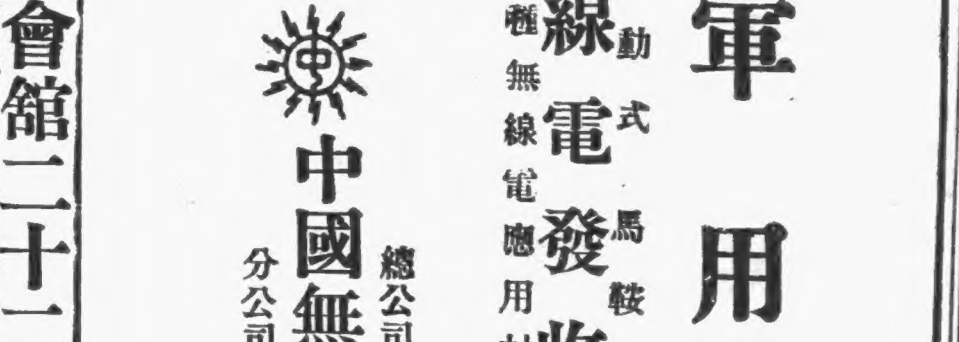 軍用
動式 馬鞍
線電發收
種無線電應用
總公司
中
中國無
分公司
會館二十一